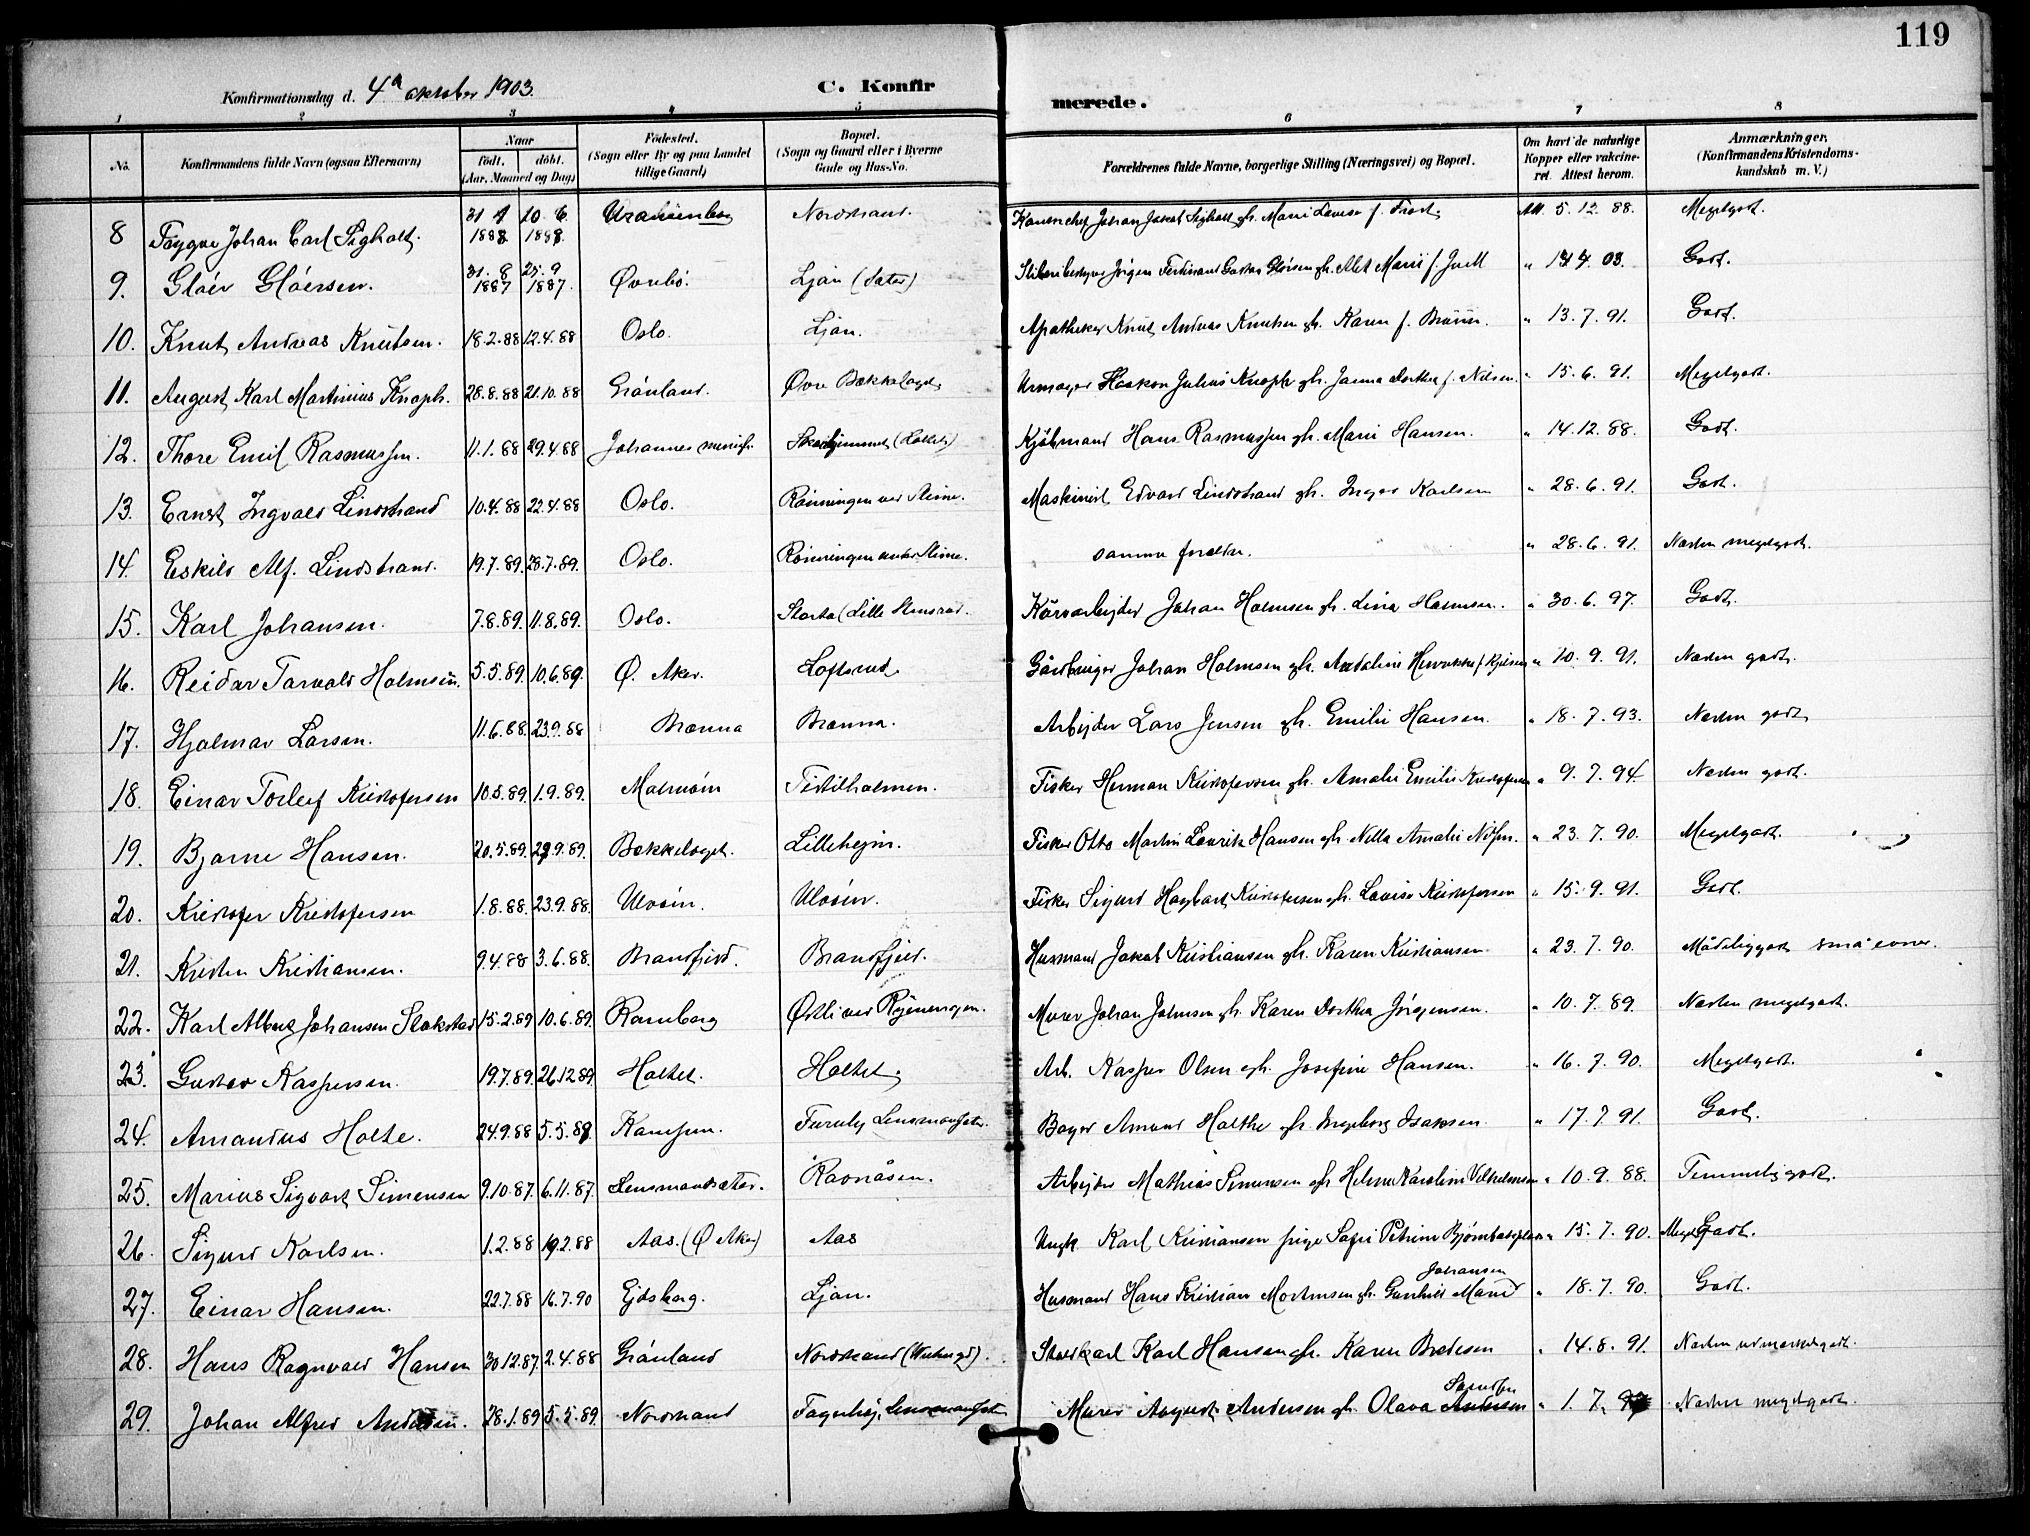 119
Konfirmationsdag d. 4de oktober 1903. C. Konfirmerede.
1 2 3 4 5 6 7 8
No. Konfirmandens fulde Navn (ogsaa Efternavn) Naar født. døbt. (Aar, Maaned og Dag) Fødested. (Sogn eller By og paa Landet tillige Gaard) Bopæl. (Sogn og Gaard eller i Byerne Gade og Hus-No. Forældrenes fulde Navne, borgerlige Stilling (Næringsvei) og Bopæl. Om havt de naturlige Kopper eller vakcineret. Attest herom. Anmærkninger, (Konfirmandens Kristendomskundskab m. V.)
8 Trygve Johan Carl Sigholt. 1888 10. 6. 1888. Uranienborg Nordstrand. Johan Jakob Sigholt gh. Marie Lovise f. Att. 5. 12. 88. Megetgodt.
9. Gløer Gløersen. 31. 8 1887 25. 9 1887. Øvrebø. Ljan (Sæter) Jørgen Ferdinand Gløersen gh. Alet Marie f. Juell " 03. Godt.
10. Knut Andreas Knutsen. 18.2.88 12.4.88 Oslo. Ljan. Apotheker Knut Andreas Knutsen gh. Karen f. " 13. 7. 91. Godt.
11. August Karl Martinius Knoph. 28.8.88 21.10.88 Grønland. Øvre Bækkelaget Urmager Haakon Julius Knoph gh. Janna Dorthea f. Nilsen. " 15. 6. 91. Megetgodt.
12. Thore Emil Rasmussen. 11.1.88 29.4.88 Johannes menigh. Kjøbmand Hans Rasmussen gh. Marie Hansen. " 14. 12. 88. Godt.
13. Ernst Ingvald Lindstrand 10.4.88 22.4.88 Oslo. Rønningen ved Maskinist Edvard Lindstrand gh. Inger Karlsen " 28. 6. 91. Godt.
14. Eskild Alf. Lindstrand. 19.7.89. 28.7.89. Oslo. Rønningen samme forældre. " 28. 6. 91. Næsten megetgodt.
15. Karl Johansen. 7.8.89. 11.8.89. Oslo. Johan Holmsen gh. Lina Holmsen. " 30. 6. 97. Godt.
16. Reidar Torvald Holmsen. 5.5.89. 10.6.89. Ø. Aker. Loftsrud. Gårdbruger Johan Holmsen gh. " 10. 9. 91. Næsten godt.
17. Hjalmar Larsen. 11.6.88. 23.9.88 Brænna Brænna. Arbejder Lars Jensen gh. Emilie Hansen. " 18. 7. 93. Næsten godt
18. Einar Torleif Kristofersen 10.5.89. 1.9.89. Malmøen Fisker Herman Kristofersen gh. Amalie Emilie Kristofersen " 9. 7. 94. Næsten godt.
19. Bjarne Hansen. 20.5.89. 29.9.89. Bækkelaget. Lillehejm. Fisker Otto Martin Laurits Hansen gh. Amalie " 23. 7. 90. Megetgodt.
20. Kristofer Kristofersen 1.8.88. 23.9.88. Ulvøen. Ulvøen. Fisker Sigurd Hagbart Kristofersen gh. Lovise Kristofersen " 15. 9. 91. Godt.
21. Kristen Kristiansen. 9.4.88 3.6.88. Brandfjeld. Brandfjeld. Husmand Jakob Kristiansen gh. Karen Kristiansen " 23. 7. 90. Mådeliggodt små evner.
22. Karl Albert Johansen Stokstad 15.2.89 10.6.89. Ramberg Østli ved Murer Johan Johnsen gh. Karen Dorthea Jørgensen. " 10. 7. 89. Næsten megetgodt.
23. Gustav Kaspersen. 19.7.89. 26.12.89 Holtet. Holtet. Arb. Kasper Olsen gh. Josefine Hansen. " 16. 7. 90. Megetgodt.
24. Amandus Holte. 24.9.88 5.5.89 Kampen. Furuly Amund Holthe gh. Ingeborg Isaksen. " 17. 7 91. Godt.
25. Marius Sigvart Simensen 9.10.87. 6.11.87. Lensmandsæter. Ravnåsen. Arbejder Mathias Simensen gh Helene Karoline Vilhelmsen " 10. 9. 88. Temmelig godt.
26. Sigurd Karlsen. 1.2.88 19.2.88 Aas. (Ø Aker) Aas Ungk. Karl Kristiansen pige Petrine " 15. 7. 90. Meget Godt.
27. Einar Hansen. 22.7.88 16.7.90 Ejdsberg. Ljan. Husmand Hans Kristian Mortensen gh. Gunhild Marie Johansen " 18. 7. 90. Godt.
28. Hans Ragnvald Hansen 30.12.87. 2.4.88 Grønland Nordstrand Karl Hansen gh. Karen Bredesen " 14. 8. 91. Næsten udmærketgodt.
29. Johan Alfred Andersen. 28.1.89 5.5.89. Nordstrand Fagerhøj, Murer August Andersen gh. Olava " 1. 7. Næsten megetgodt.